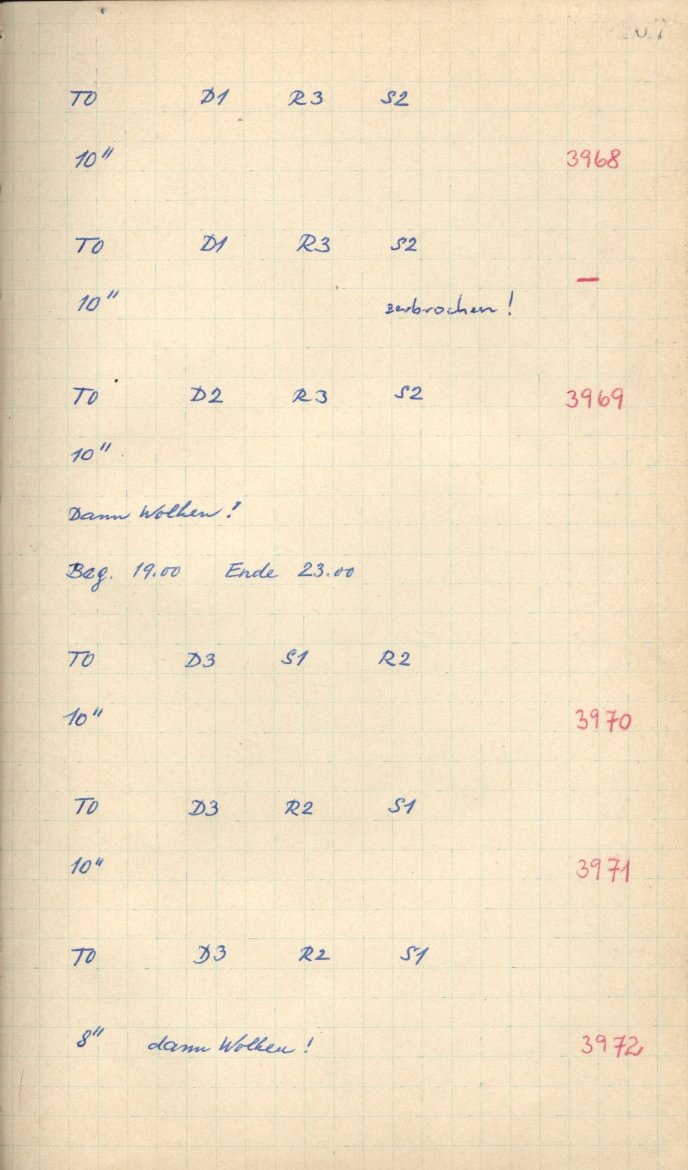 TO D1 R3 S2
10" 3968
TO D1 R3 S2
—
10" zerbrochen!
TO D2 R3 S2 3969
10"
Dann Wolken!
Beg. 19.00 Ende 23.00
TO D3 S1 R2
10" 3970
TO D3 R2 S1
10" 3971
TO D3 R2 S1
8" dann Wolken! 3972